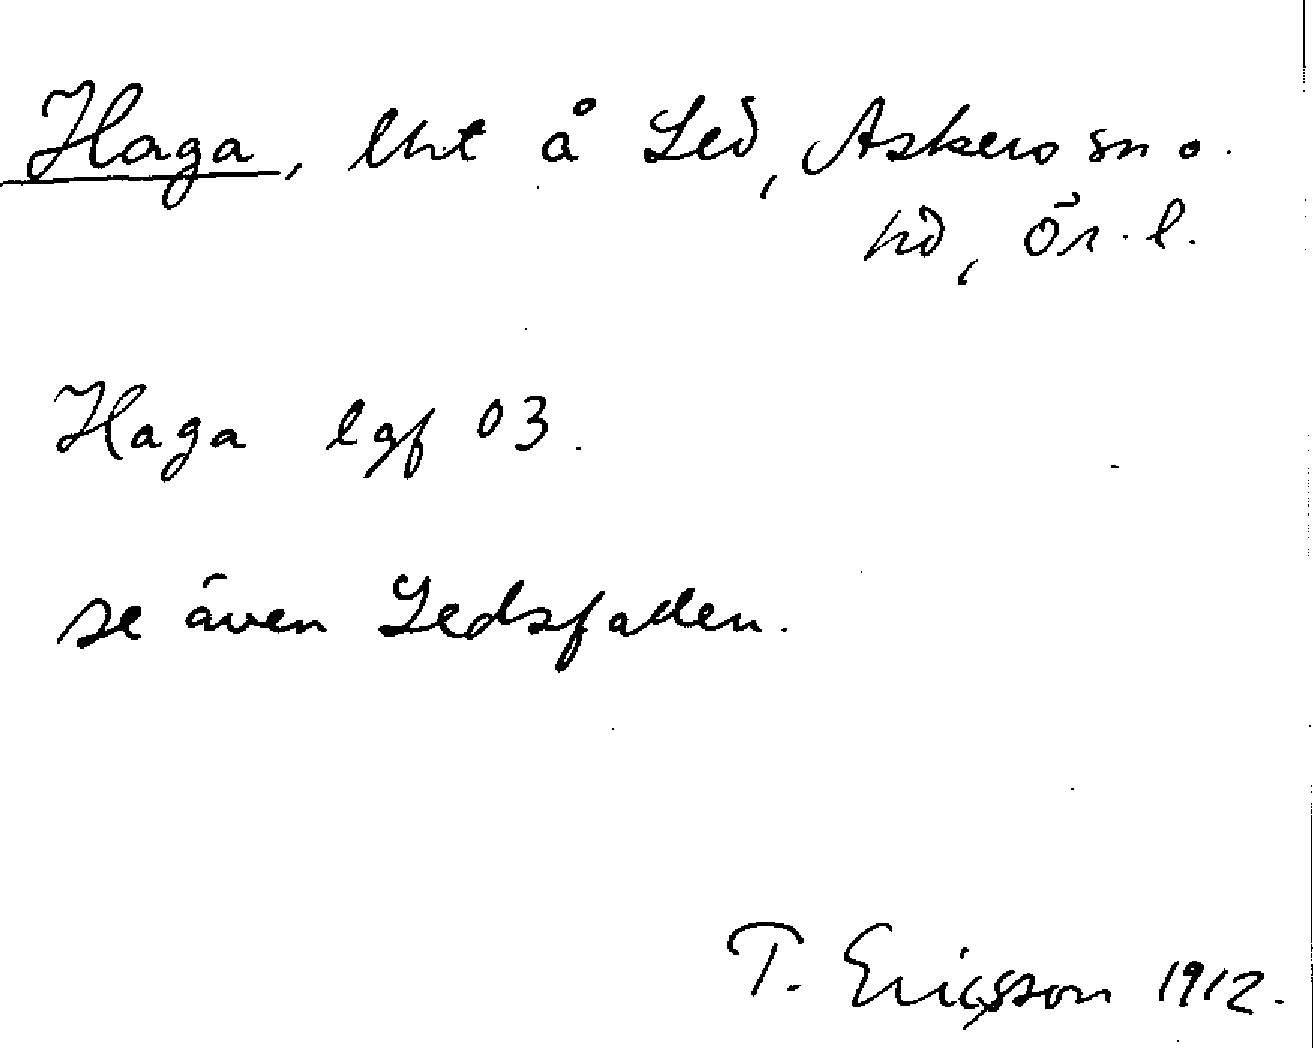 Haga, lht å Led, Askers sn o.
hd, Ör. l.
Haga lgf 03.
se även Ledsfaden.
T. Ericsson 1912.